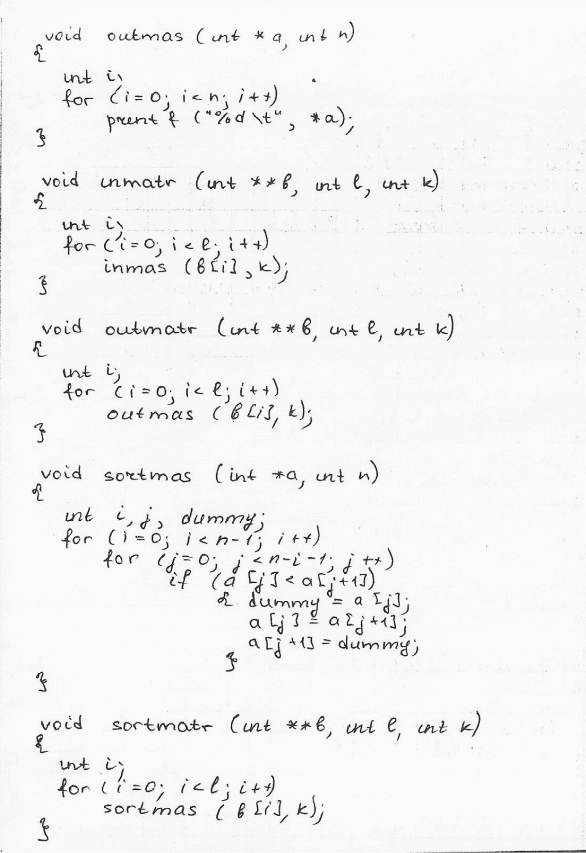 void outmas (int * a, int n)
{
int i;
for (i=0; i<n; i++)
printf ("%d\t", *a);
}
void inmatr (int **b, int l, int k)
{
int i;
for (i=0; i<l; i++)
inmas (b[i], k);
}
void outmatr (int **b, int l, int k)
{
int i;
for (i=0; i<l; i++)
outmas (b[i], k);
}
void sortmas (int *a, int n)
{
int i, j, dummy;
for (i=0; i<n-1; i++)
for (j=0; j<n-i-1; j++)
if (a[j]<a[j+1])
{ dummy = a[j];
a[j] = a[j+1];
a[j+1] = dummy;
}
}
void sortmatr (int **b, int l, int k)
{
int i;
for (i=0; i<l; i++)
sortmas (b[i], k);
}